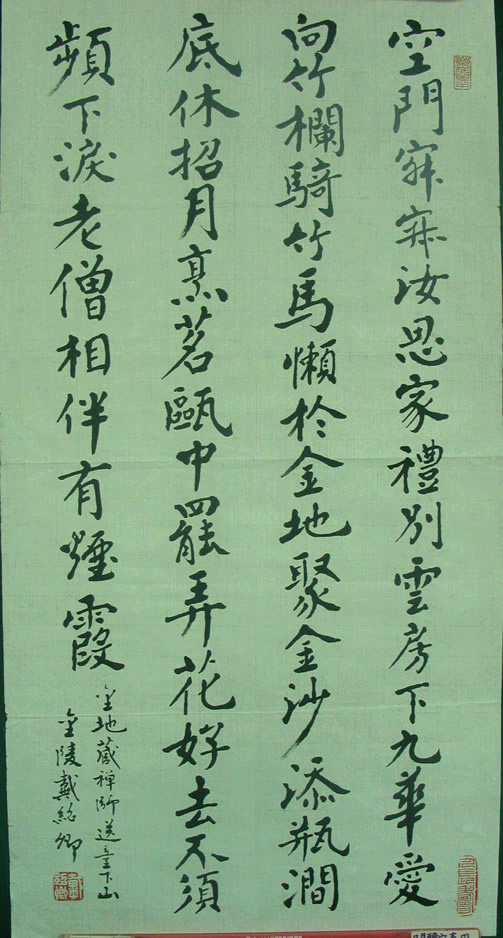 空門寂寂汝思家禮別雲房下九華愛
向竹欄騎竹馬懶於金地聚金沙添瓶澗
底休招月烹茗甌中罷弄花好去不須
頻下淚老僧相伴有煙霞
金地藏禪師送童下山
金陵戴紹卿